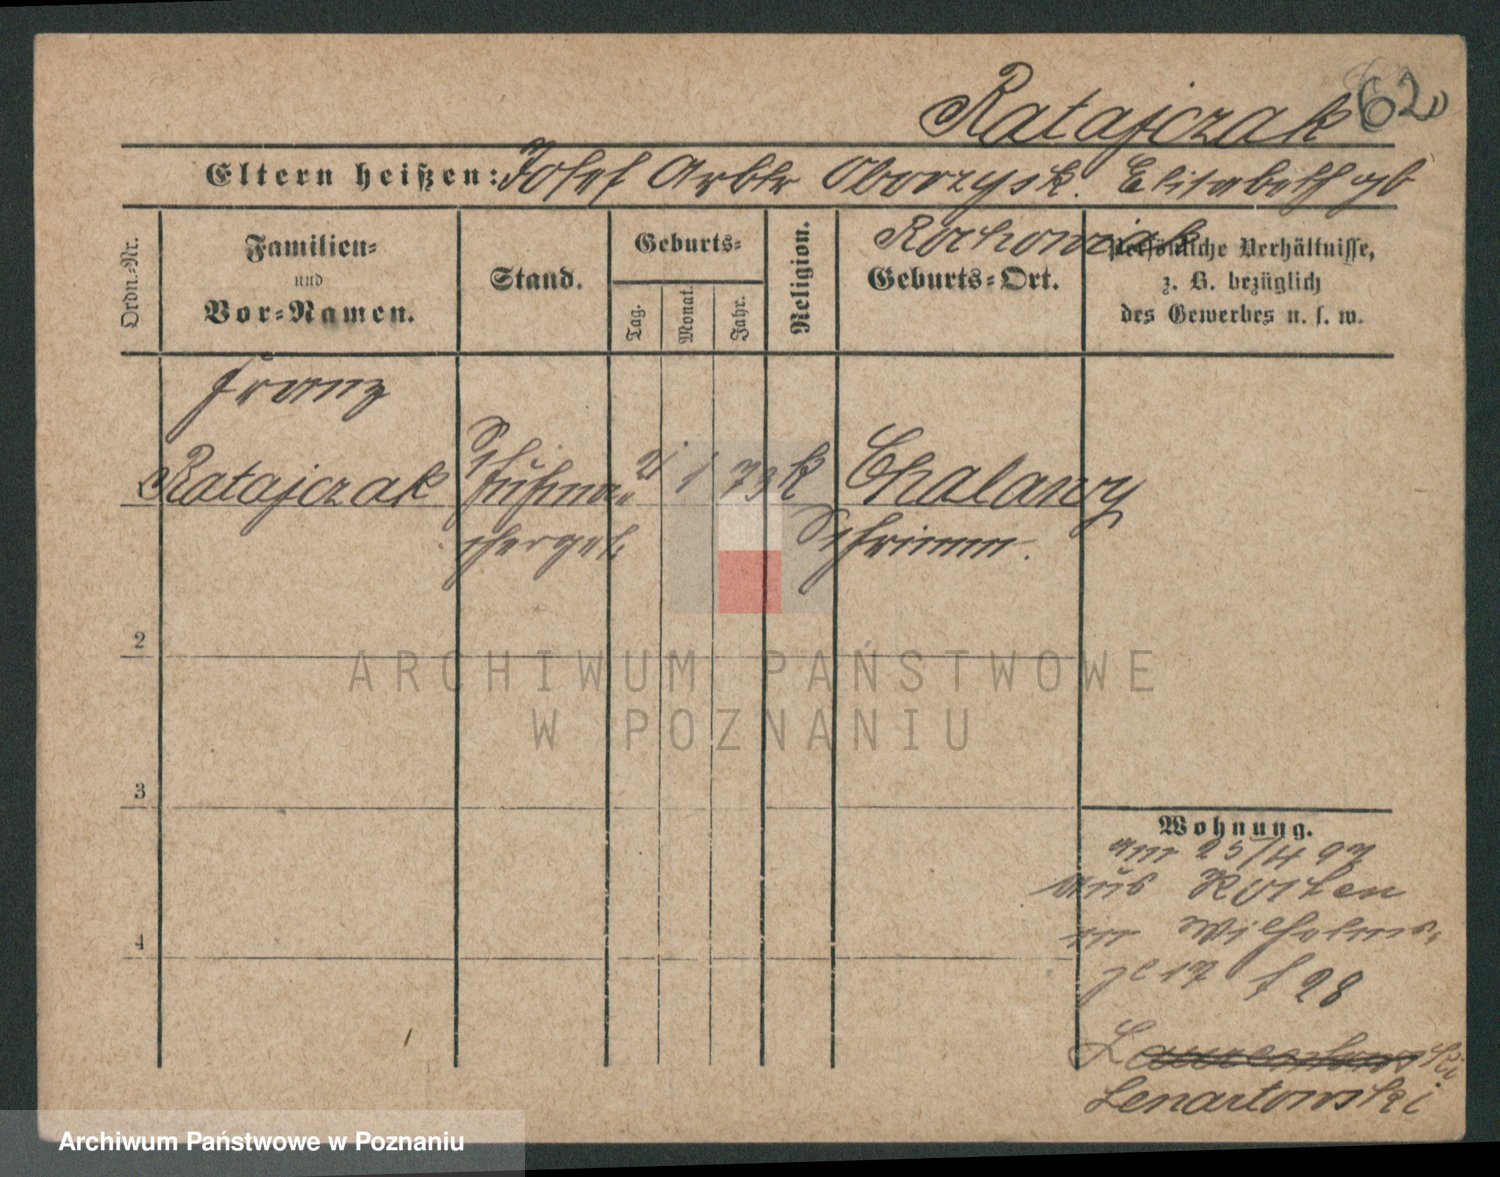 Ratajczak 62
Eltern heißen: Josef Arbtr Oborzysk. Elisabeth gb
Rochowiak
Ordn.-Nr.
Familien-
und
Vor-Namen.
Stand.
Geburts-
Tag.
Monat.
Jahr.
Religion.
Geburts-Ort.
Persönliche Verhältnisse,
z. B. bezüglich
des Gewerbes u. s. w.
Franz
Ratajczak Schuhma 21 1 79 k Chalawy
chergel. Schrimm.
2
3
4
ARCHIWUM PAŃSTWOWE
W POZNANIU
Wohnung.
am 25/4 97
aus Kosten
in Wilhelms-
pl 17 f 98
Lenartowski
Archiwum Państwowe w Poznaniu